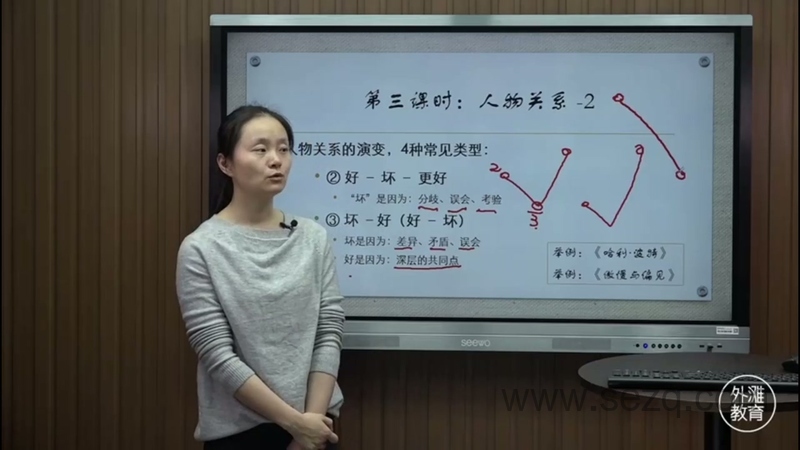 第三课时：人物关系-2
人物关系的演变，4种常见类型：
② 好 – 坏 – 更好
“坏”是因为：分歧、误会、考验
③ 坏 – 好（好 – 坏）
坏是因为：差异、矛盾、误会
好是因为：深层的共同点
举例：《哈利·波特》
举例：《傲慢与偏见》
2
seewo
外滩
教育